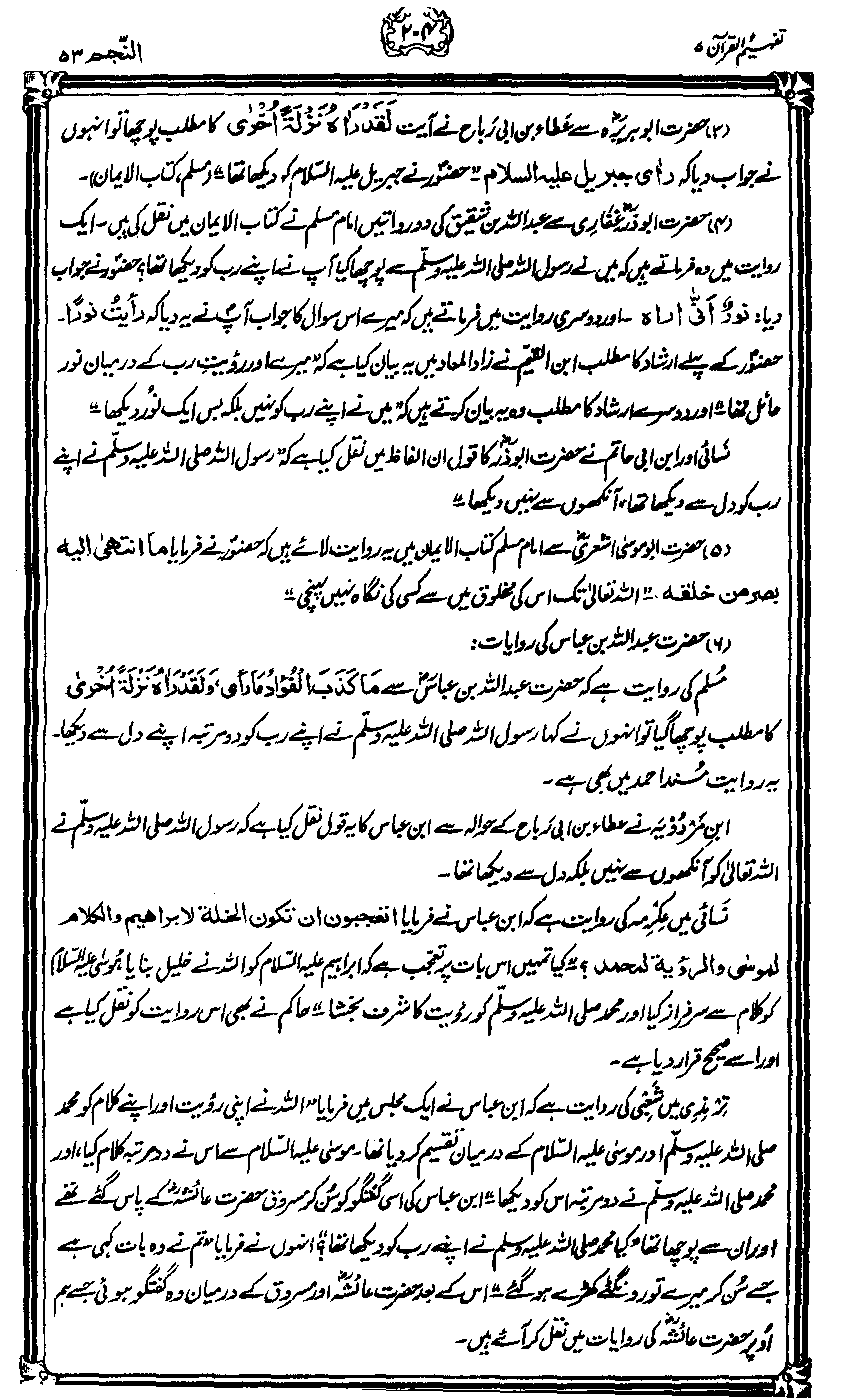 تفہیم القرآن ۵
۲۰۴
النّجم ۵۳
(۳) حضرت ابوہریرہؓ سے عطاء بن ابی رَباح نے آیت لَقَدْ رَاٰہُ نَزْلَۃً اُخْرٰی کا مطلب پوچھا تو انہوں
نے جواب دیا کہ راٰی جبریل علیہ السلام۔ "حضورؐ نے جبریل علیہ السّلام کو دیکھا تھا" (مسلم، کتاب الایمان)۔
(۴) حضرت ابوذرؓ غفاری سے عبداللہ بن شقیق کی دو روایتیں امام مسلم نے کتاب الایمان میں نقل کی ہیں۔ ایک
روایت میں وہ فرماتے ہیں کہ میں نے رسول اللہ صلی اللہ علیہ وسلّم سے پوچھا کیا آپ نے اپنے رب کو دیکھا تھا؟ حضورؐ نے جواب
دیا: نورٌ اَنّٰی اراہ۔ اور دوسری روایت میں فرماتے ہیں کہ میرے اس سوال کا جواب آپؐ نے یہ دیا کہ رأیتُ نورًا۔
حضورؐ کے پہلے ارشاد کا مطلب ابن القیم نے زاد المعاد میں یہ بیان کیا ہے کہ "میرے اور رؤیتِ رب کے درمیان نور
حائل تھا" اور دوسرے ارشاد کا مطلب وہ یہ بیان کرتے ہیں کہ "میں نے اپنے رب کو نہیں بلکہ بس ایک نور دیکھا"
نسائی اور ابن ابی حاتم نے حضرت ابوذرؓ کا قول ان الفاظ میں نقل کیا ہے کہ "رسول اللہ صلی اللہ علیہ وسلّم نے اپنے
رب کو دل سے دیکھا تھا، آنکھوں سے نہیں دیکھا"
(۵) حضرت ابوموسیٰ اشعریؓ سے امام مسلم کتاب الایمان میں یہ روایت لائے ہیں کہ حضورؐ نے فرمایا ما انتھیٰ الیہ
بصر من خلقہ۔ "اللہ تعالیٰ تک اس کی مخلوق میں سے کسی کی نگاہ نہیں پہنچی"
(۶) حضرت عبداللہ بن عباس کی روایات:
مُسلم کی روایت ہے کہ حضرت عبداللہ بن عباسؓ سے مَا کَذَبَ الْفُؤَادُ مَا رَاٰی، وَلَقَدْ رَاٰہُ نَزْلَۃً اُخْرٰی
کا مطلب پوچھا گیا تو انہوں نے کہا رسول اللہ صلی اللہ علیہ وسلّم نے اپنے رب کو دو مرتبہ اپنے دل سے دیکھا۔
یہ روایت مُسند احمد میں بھی ہے۔
ابن مَرْدُوْیہ نے عطاء بن ابی رَباح کے حوالہ سے ابن عباس کا یہ قول نقل کیا ہے کہ رسول اللہ صلی اللہ علیہ وسلّم نے
اللہ تعالیٰ کو آنکھوں سے نہیں بلکہ دل سے دیکھا تھا۔
نسائی میں عِکْرِمہ کی روایت ہے کہ ابن عباس نے فرمایا اتعجبون ان تکون الخلۃ لابراھیم والکلام
لموسٰی والرؤیۃ لمحمد؟ "کیا تمہیں اس بات پر تعجب ہے کہ ابراہیم علیہ السّلام کو اللہ نے خلیل بنایا، موسٰی علیہ السّلام
کو کلام سے سرفراز کیا اور محمد صلی اللہ علیہ وسلّم کو رؤیت کا شرف بخشا" حاکم نے بھی اس روایت کو نقل کیا ہے
اور اسے صحیح قرار دیا ہے۔
ترمذی میں شَعْبی کی روایت ہے کہ ابن عباس نے ایک مجلس میں فرمایا "اللہ نے اپنی رؤیت اور اپنے کلام کو محمد
صلی اللہ علیہ وسلّم اور موسیٰ علیہ السّلام کے درمیان تقسیم کر دیا تھا۔ موسیٰ علیہ السّلام سے اس نے دو مرتبہ کلام کیا، اور
محمد صلی اللہ علیہ وسلّم نے دو مرتبہ اس کو دیکھا" ابن عباس کی اسی گفتگو کو سُن کر مسروق حضرت عائشہؓ کے پاس گئے تھے
اور ان سے پوچھا تھا "کیا محمد صلی اللہ علیہ وسلم نے اپنے رب کو دیکھا تھا؟" انہوں نے فرمایا "تم نے وہ بات کہی ہے
جسے سُن کر میرے تو رونگٹے کھڑے ہو گئے" اس کے بعد حضرت عائشہؓ اور مسروق کے درمیان وہ گفتگو ہوئی جسے ہم
اُوپر حضرت عائشہؓ کی روایات میں نقل کر آئے ہیں۔